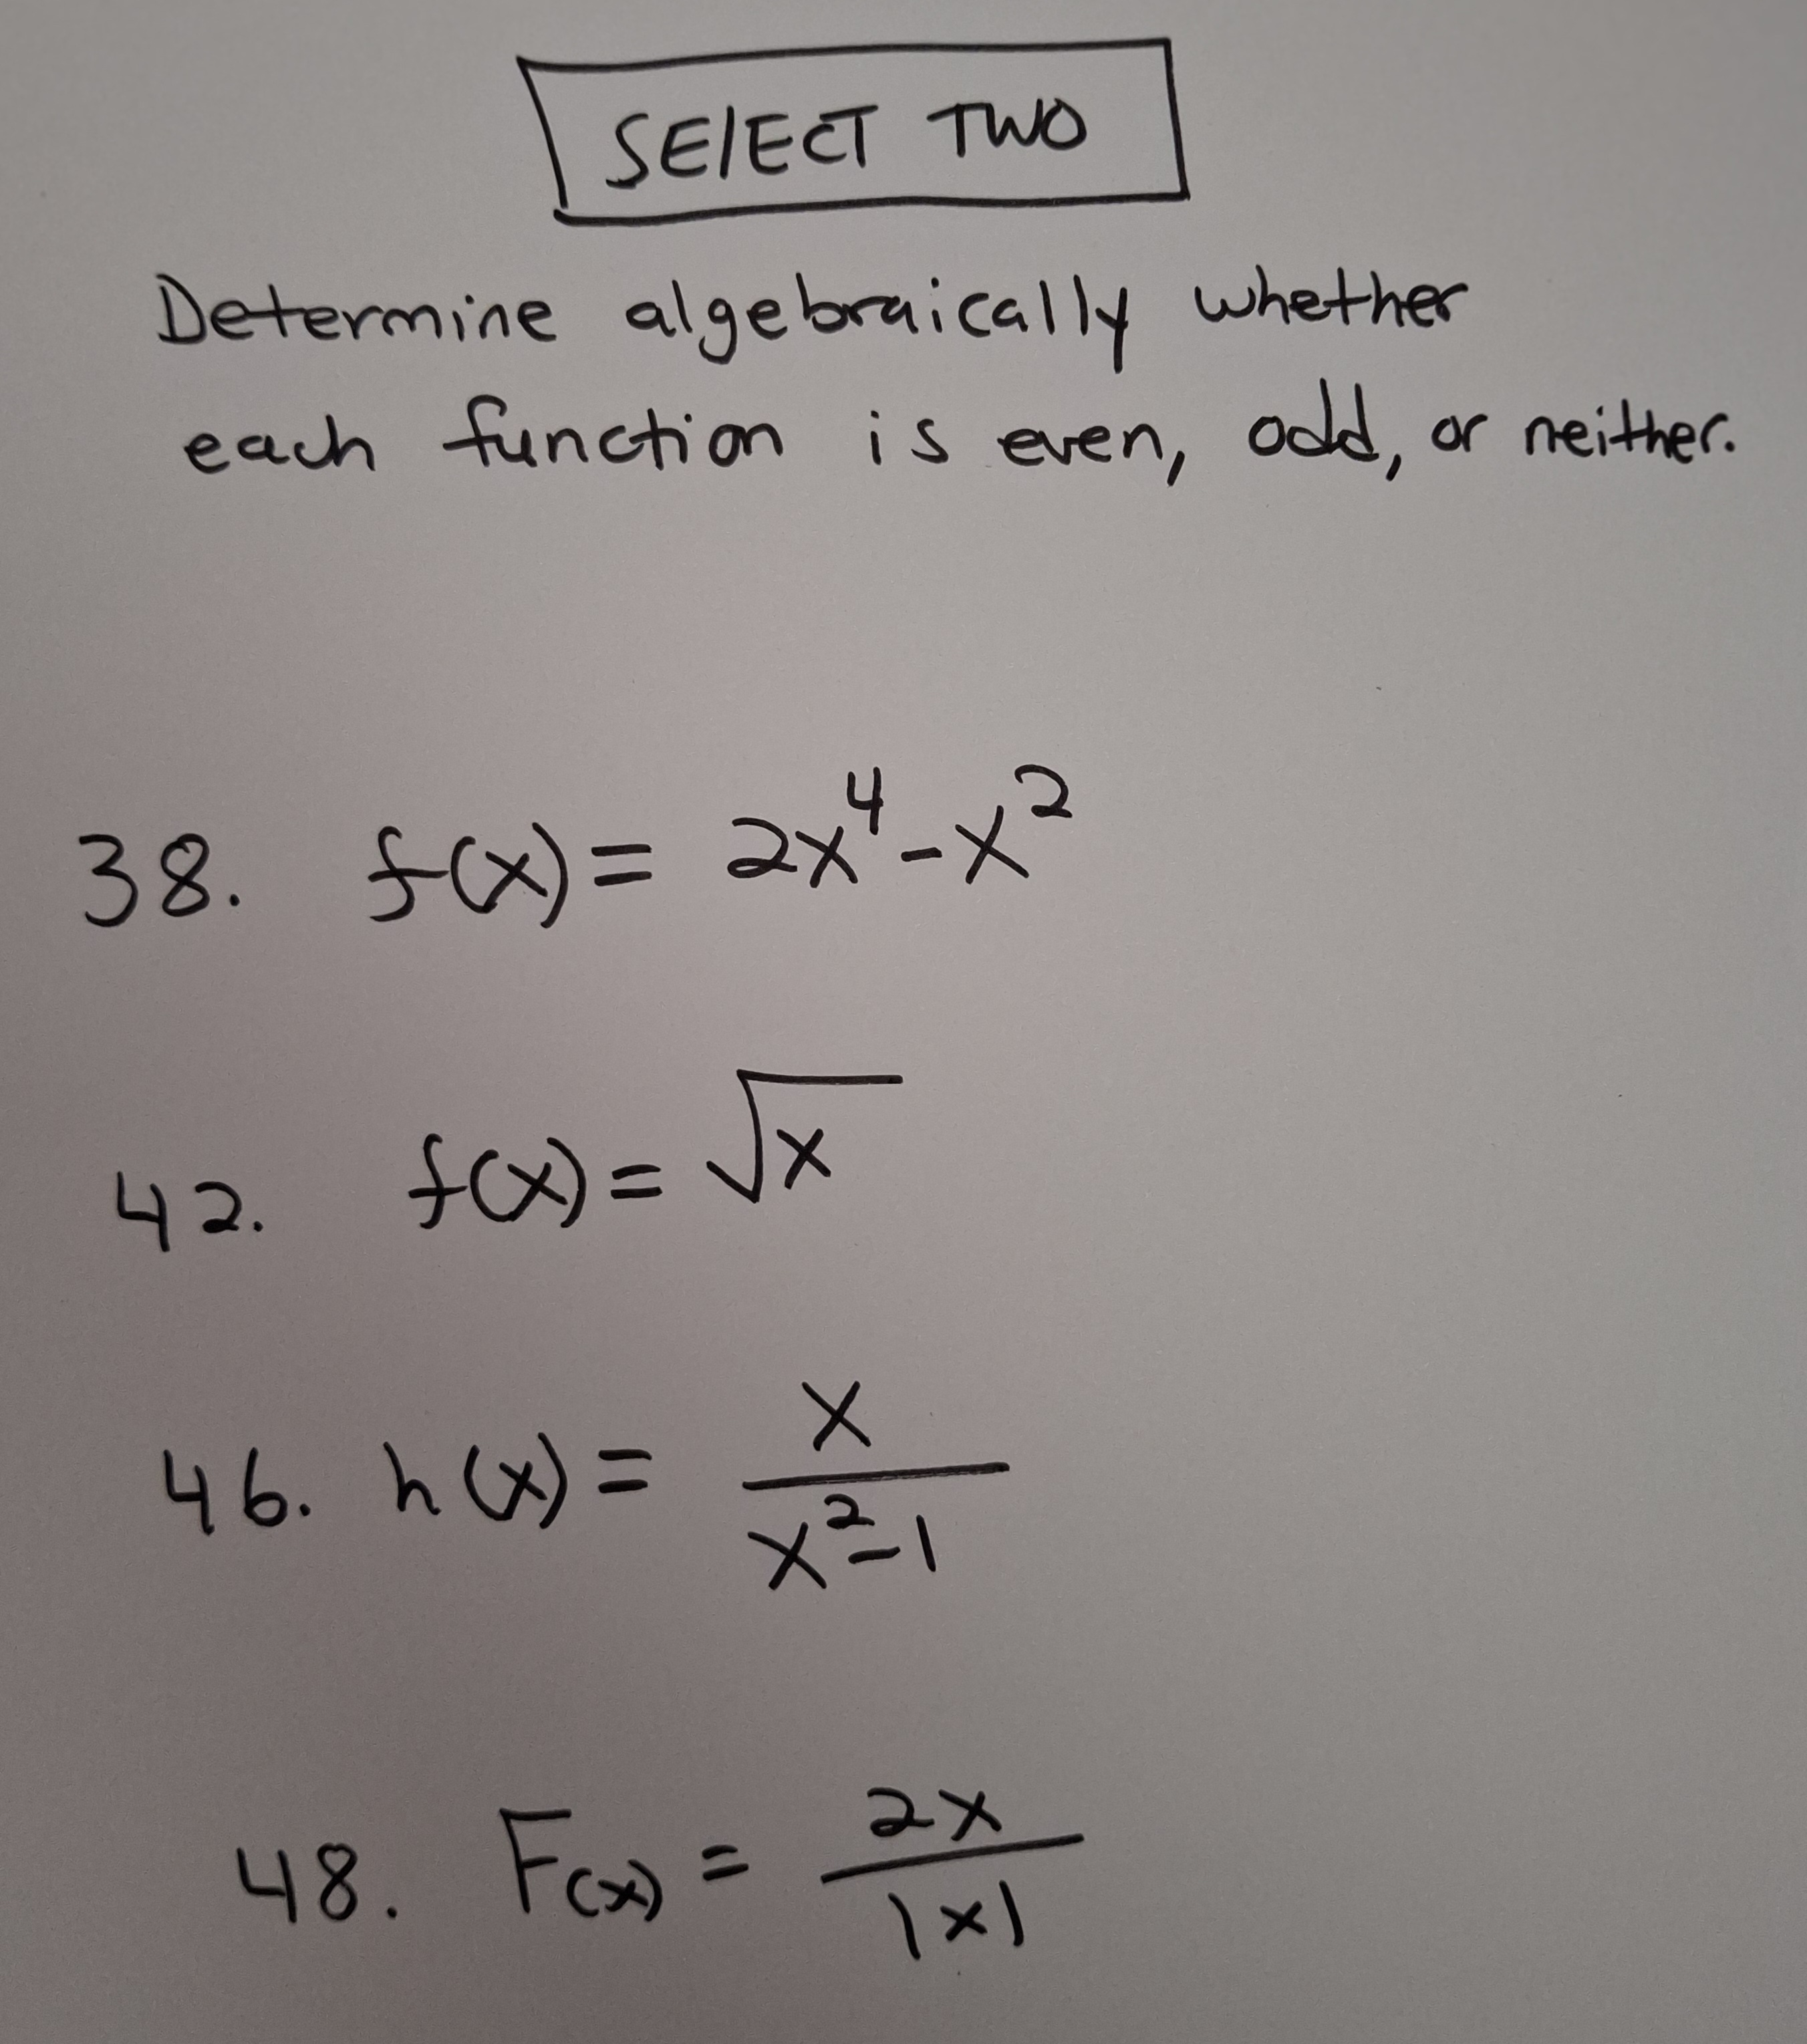 SElECT TWO
Determine algebraically whether
each function is even, odd, or neither.
38. f(x) = 2x⁴-x²
42. f(x) = √x
46. h(x) = x/(x²-1)
48. F(x) = 2x/|x|